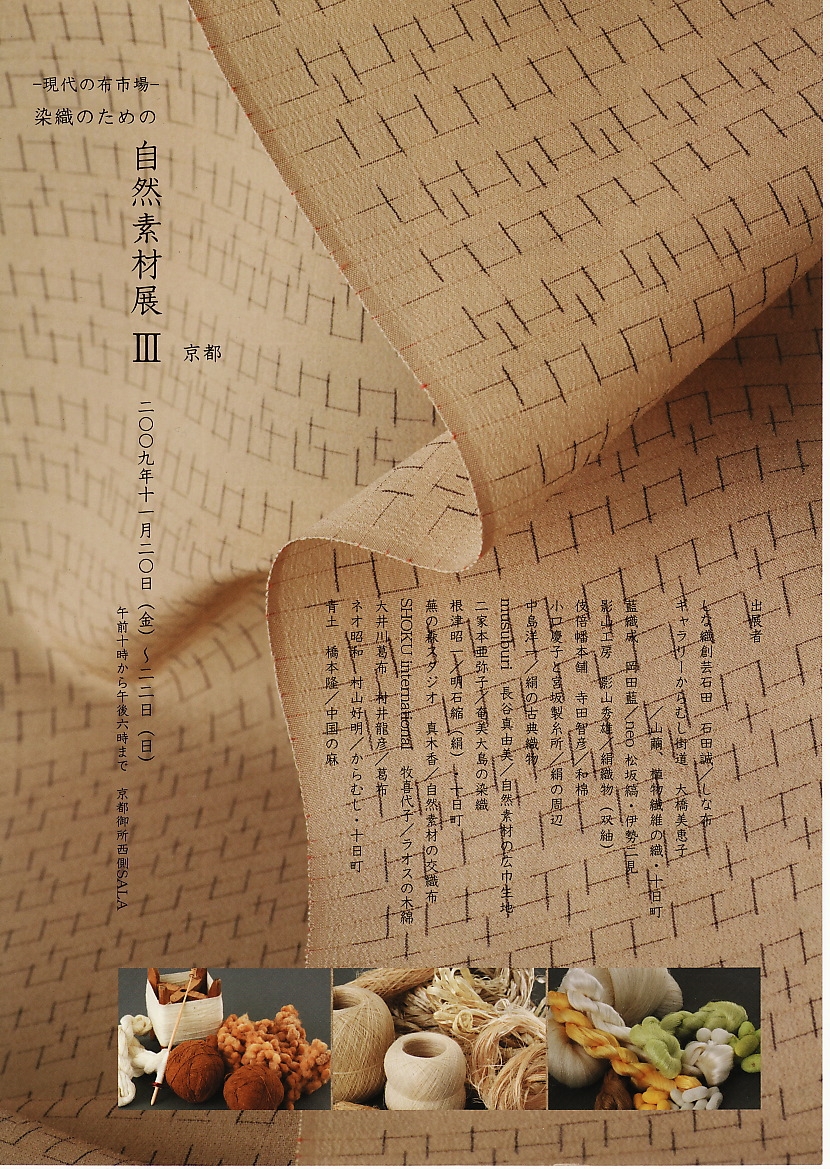 −現代の布市場−
染織のための
自然素材展Ⅲ 京都
二〇〇九年十一月二〇日（金）〜二二日（日）
午前十時から午後六時まで 京都御所西側SALA
出展者
しな織創芸石田 石田誠／しな布
ギャラリーからむし街道 大橋美恵子
／山繭、植物繊維の織・十日町
藍織成 岡田藍／neo 松坂縞・伊勢二見
影山工房 影山秀雄／絹織物（双紬）
伎倍幡本舗 寺田智彦／和棉
小口慶子と宮坂製糸所／絹の周辺
中島洋一／絹の古典織物
musuburi 長谷真由美／自然素材の広巾生地
二家本亜弥子／奄美大島の染織
根津昭一／明石縮（絹）・十日町
蕪の森スタジオ 真木香／自然素材の交織布
SHOKU international 牧喜代子／ラオスの木綿
大井川葛布 村井龍彦／葛布
ネオ昭和 村山好明／からむし・十日町
青土 橋本隆／中国の麻